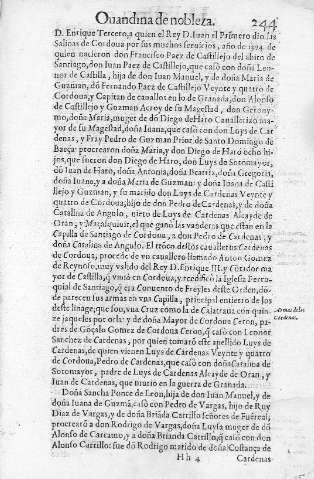 Ouandina de nobleza. 244
D. Enrique Tercero, a quien el Rey D. Iuan el Primero dio las
Salinas de Cordoua por sus muchos seruicios, año de 1394. de
quien nacieron don Francisco Paez de Castillejo del abito de
Santiago, don Iuan Paez de Castillejo, que casò con doña Leo-
nor de Castilla, hija de don Iuan Manuel, y de doña Maria de
Guzman, dõ Fernando Paez de Castillejo Veynte y quatro de
Cordoua, y Capitan de cauallos en lo de Granada, don Alonso
de Castillejo y Guzman Acroy de su Magestad, don Geronymo,
doña Maria, muger de dõ Diego de Haro Cauallerizo ma-
yor de su Magestad, doña Iuana, que casò con don Luys de Car
denas, y Fray Pedro de Guzman Prior de Santo Domingo de
Baeça: procrearon doña Maria, y don Diego de Haro ocho hi-
jos, que fueron don Diego de Haro, don Luys de Sotomayor,
dõ Iuan de Haro, doña Antonia, doña Beatriz, doña Gregoria,
doña Iuana, y a doña Maria de Guzman: y doña Iuana de Casti
llejo y Guzman, y su marido don Luys de Cardenas Veynte y
quatro de Cordoua, hijo de don Pedro de Cardenas, y de doña
Catalina de Angulo, nieto de Luys de Cardenas Alcayde de
Oran, y Maçalquiuir, el que ganò las vanderas que estan en la
Capilla de Santiago de Cordoua, a don Pedro de Cardenas, y
doña Catalina de Angulo. El trõco destos caualleros Cardenas
de Cordoua, procede de vn cauallero llamado Anton Gomez
de Reynoso, muy valido del Rey D. Enrique III. y Cõtador ma
yor de Castilla, q̃ viuiò en Cordoua, y reedificò la Iglesia Parro-
quial de Santiago, q̃ era Conuento de Freyles deste Orden, dõ-
de parecen los armas en vna Capilla, principal entierro de los
deste linage; que son, vna Cruz como la de Calatraua con quin-
ze jaqueles por orla: y de doña Mayor de Cordoua Ceron, pa-
dres de Gõçalo Gomez de Cordoua Ceron, q̃ casò con Leonor
Sanchez de Cardenas, por quien tomarõ este apellido Luys de
Cardenas, de quien vienen Luys de Cardenas Veynte y quatro
de Cordoua, Pedro de Cardenas, que casò con doña Catalina de
Sotomayor, padre de Luys de Cardenas Alcayde de Oran, y
Iuan de Cardenas, que murio en la guerra de Granada.
Armas de los
Cardenas.
Doña Sancha Ponce de Leon, hija de don Iuan Manuel, y de
doña Iuana de Guzmã, casò con Pedro de Vargas, hijo de Ruy
Diaz de Vargas, y de doña Briãda Carrillo señores de Fuẽreal;
procrearõ a don Rodrigo de Vargas, doña Luysa muger de dõ
Alonso de Carcamo, y a doña Brianda Carrillo, q̃ casò con don
Alonso Carrillo: fue dõ Rodrigo marido de doña Costança de
Hh 4 Cardenas